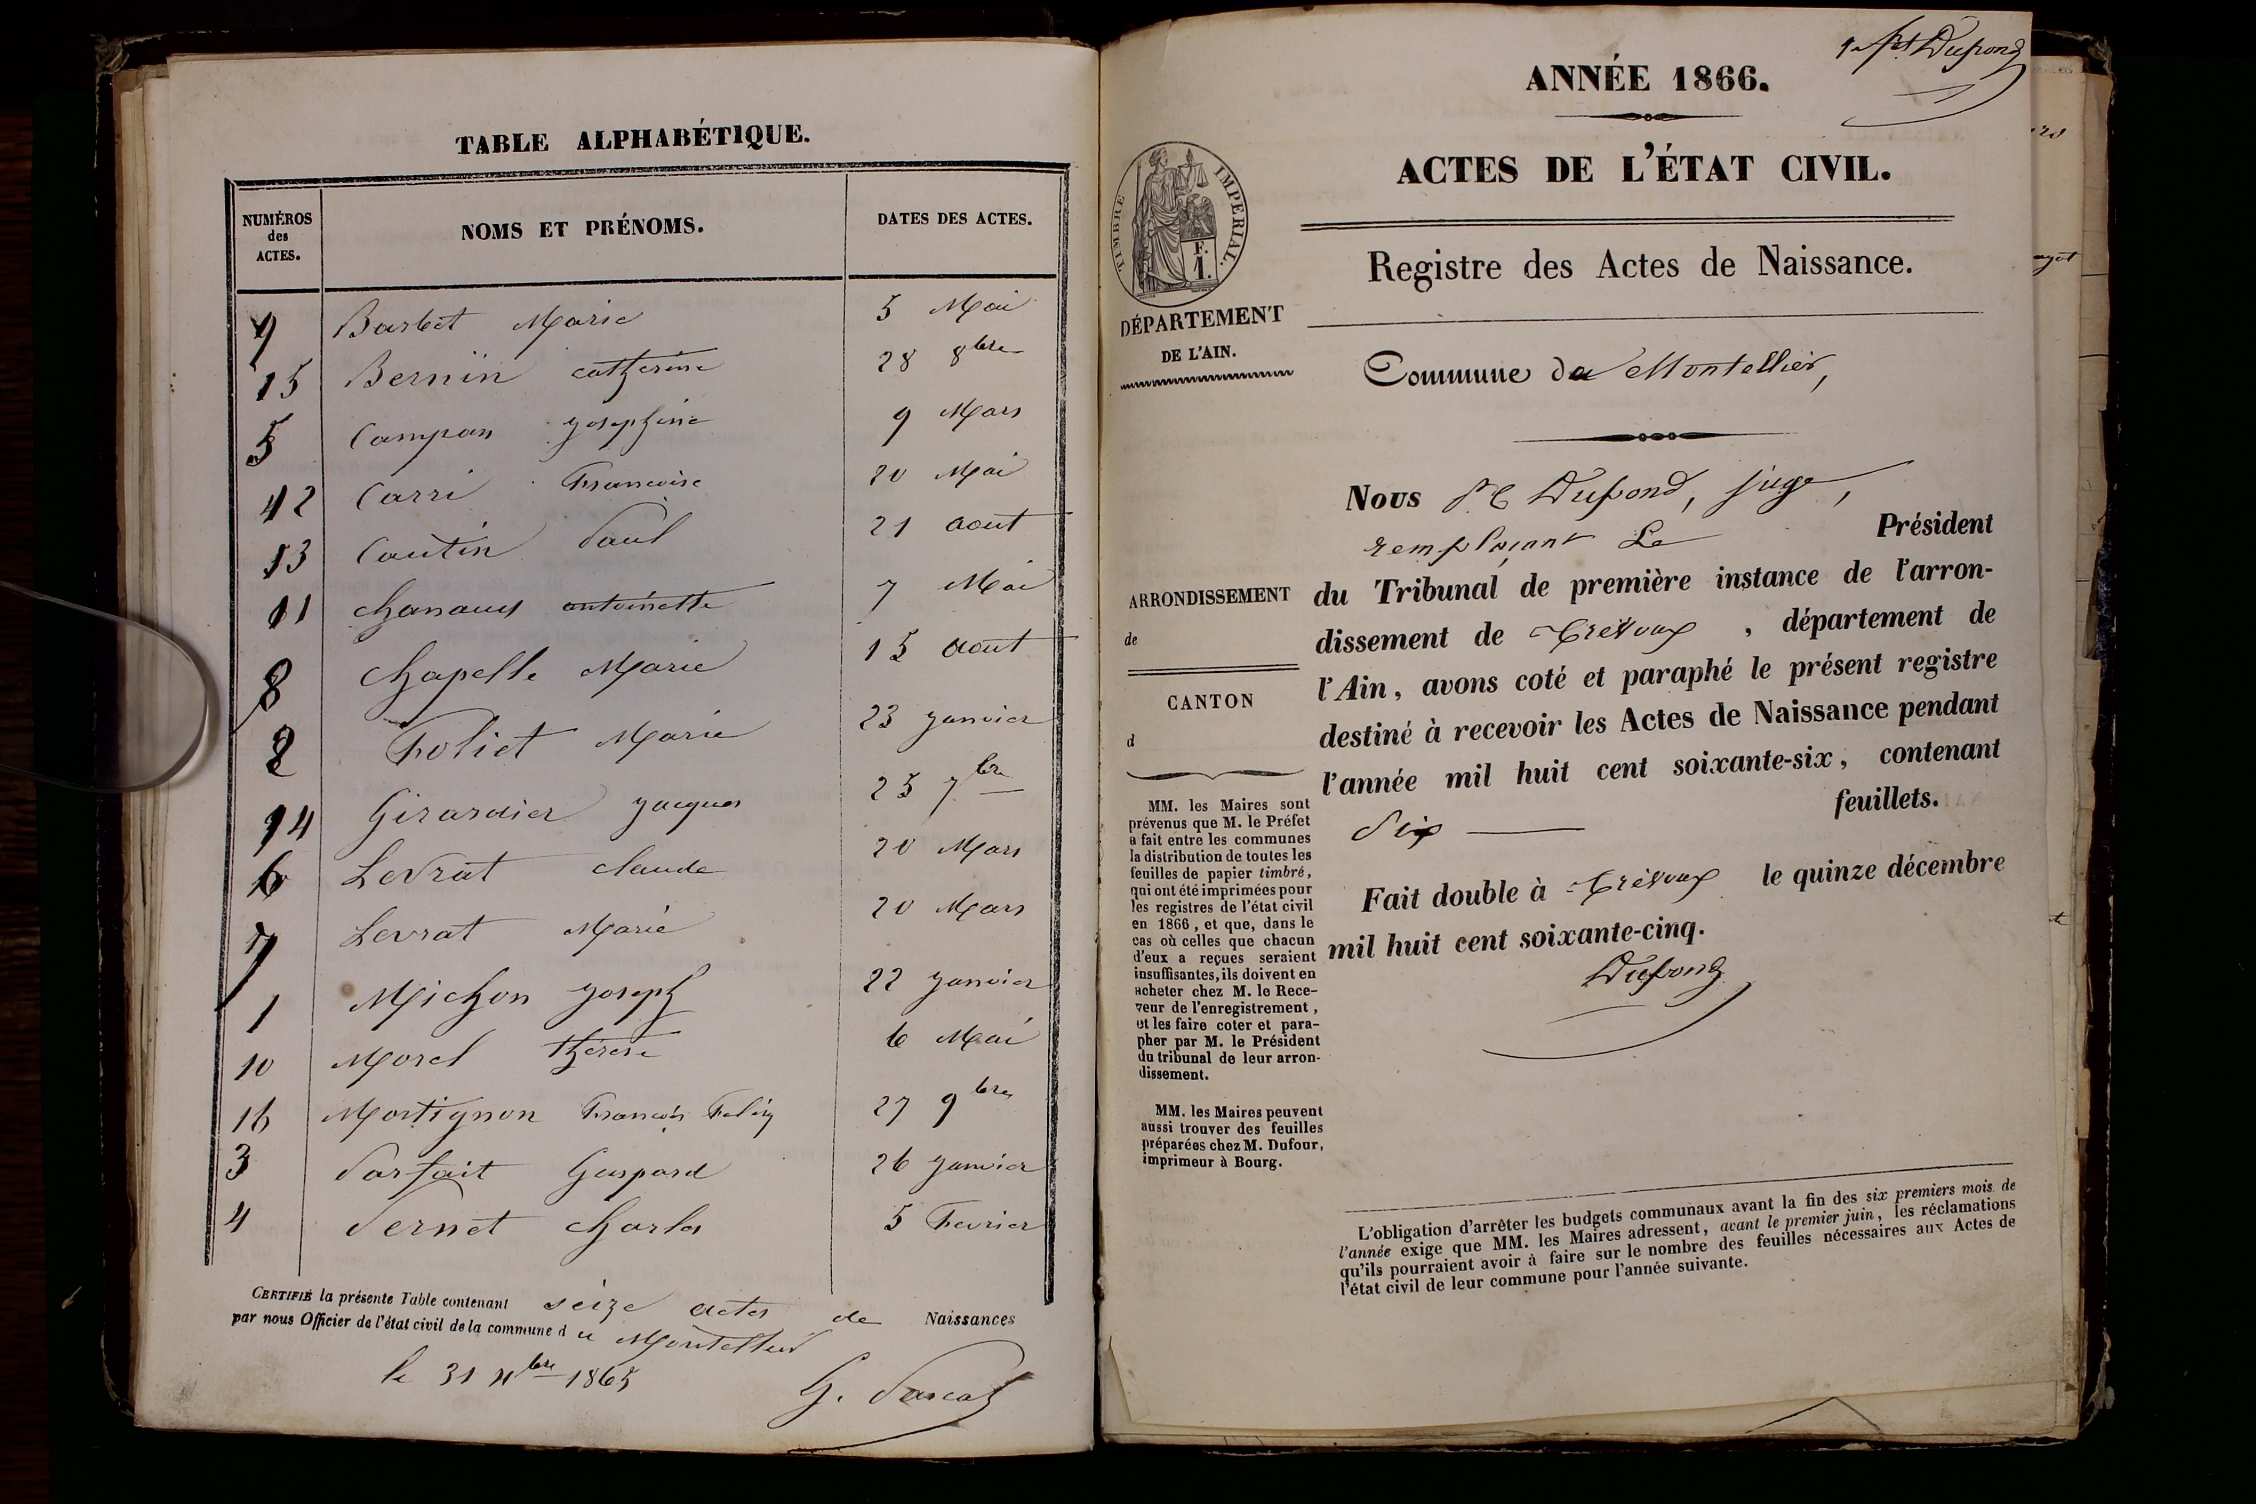 TABLE ALPHABÉTIQUE.
NUMÉROS des ACTES. NOMS ET PRÉNOMS. DATES DES ACTES.
9 Barbet Marie 5 Mai
15 Bernin catherine 28 8bre
5 Campan josephine 9 Mars
12 Carri Francoise 20 Mai
13 Coutin Paul 21 aout
11 antoinette 7 Mai
8 chapelle Marie 15 aout
2 Foliet Marie 23 janvier
14 Girardier jacques 25 7bre
6 Levrat claude 20 Mars
7 Levrat Marie 20 Mars
1 Michon joseph 22 janvier
10 Morel thérèse 6 Mai
16 Mortignon Francois Felix 27 9bre
3 Parfait Gaspard 26 janvier
4 Pernet charles 5 Fevrier
CERTIFIÉ la présente Table contenant seize actes de Naissances
par nous Officier de l'état civil de la commune du Montellier
le 31 Xbre 1865
G. Pascal
Dupond
ANNÉE 1866.
ACTES DE L'ÉTAT CIVIL.
TIMBRE IMPÉRIAL.
F.
1.
Registre des Actes de Naissance.
DÉPARTEMENT
DE L'AIN.
Commune du Montellier,
Nous Dupond, juge,
remplaçant Le Président
du Tribunal de première instance de l'arron-
dissement de Trévoux, département de
l'Ain, avons coté et paraphé le présent registre
destiné à recevoir les Actes de Naissance pendant
l'année mil huit cent soixante-six, contenant
Dix feuillets.
Fait double à Trévoux le quinze décembre
mil huit cent soixante-cinq.
Dupond
ARRONDISSEMENT
de
CANTON
d
MM. les Maires sont
prévenus que M. le Préfet
a fait entre les communes
la distribution de toutes les
feuilles de papier timbré,
qui ont été imprimées pour
les registres de l'état civil
en 1866, et que, dans le
cas où celles que chacun
d'eux a reçues seraient
insuffisantes, ils doivent en
acheter chez M. le Rece-
veur de l'enregistrement,
et les faire coter et para-
pher par M. le Président
du tribunal de leur arron-
dissement.
MM. les Maires peuvent
aussi trouver des feuilles
préparées chez M. Dufour,
imprimeur à Bourg.
L'obligation d'arrêter les budgets communaux avant la fin des six premiers mois de
l'année exige que MM. les Maires adressent, avant le premier juin, les réclamations
qu'ils pourraient avoir à faire sur le nombre des feuilles nécessaires aux Actes de
l'état civil de leur commune pour l'année suivante.